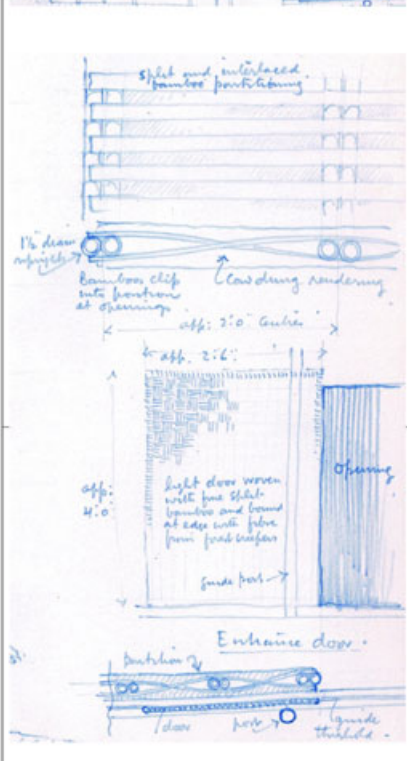 split and interlaced
bamboo partitioning
1½ diam
upright
Bamboos clip
into position
at openings
Cowdung rendering
app: 2'.0" Centres
app. 2'.6"
app:
4'.0
light door woven
with fine split
bamboo and bound
at edge with fibre
from forest creepers
opening
guide post
Entrance door.
Partition
door
post
guide
threshold.